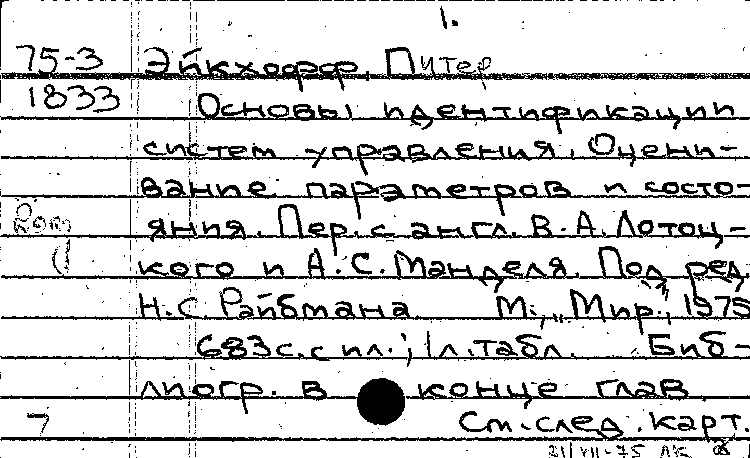 1.
75-3 Эйкхофф, Питер
1833 Основы идентификации
систем управления. Оцени-
вание параметров и состо-
яния. Пер. с англ. В.А. Лотоц-
кого и А.С. Манделя. Под ред.
Н.С. Райбмана М., "Мир", 1975
683 с. с ил.; 1 л. табл. Биб-
лиогр. в конце глав.
7 См. след. карт.
31/VII-75